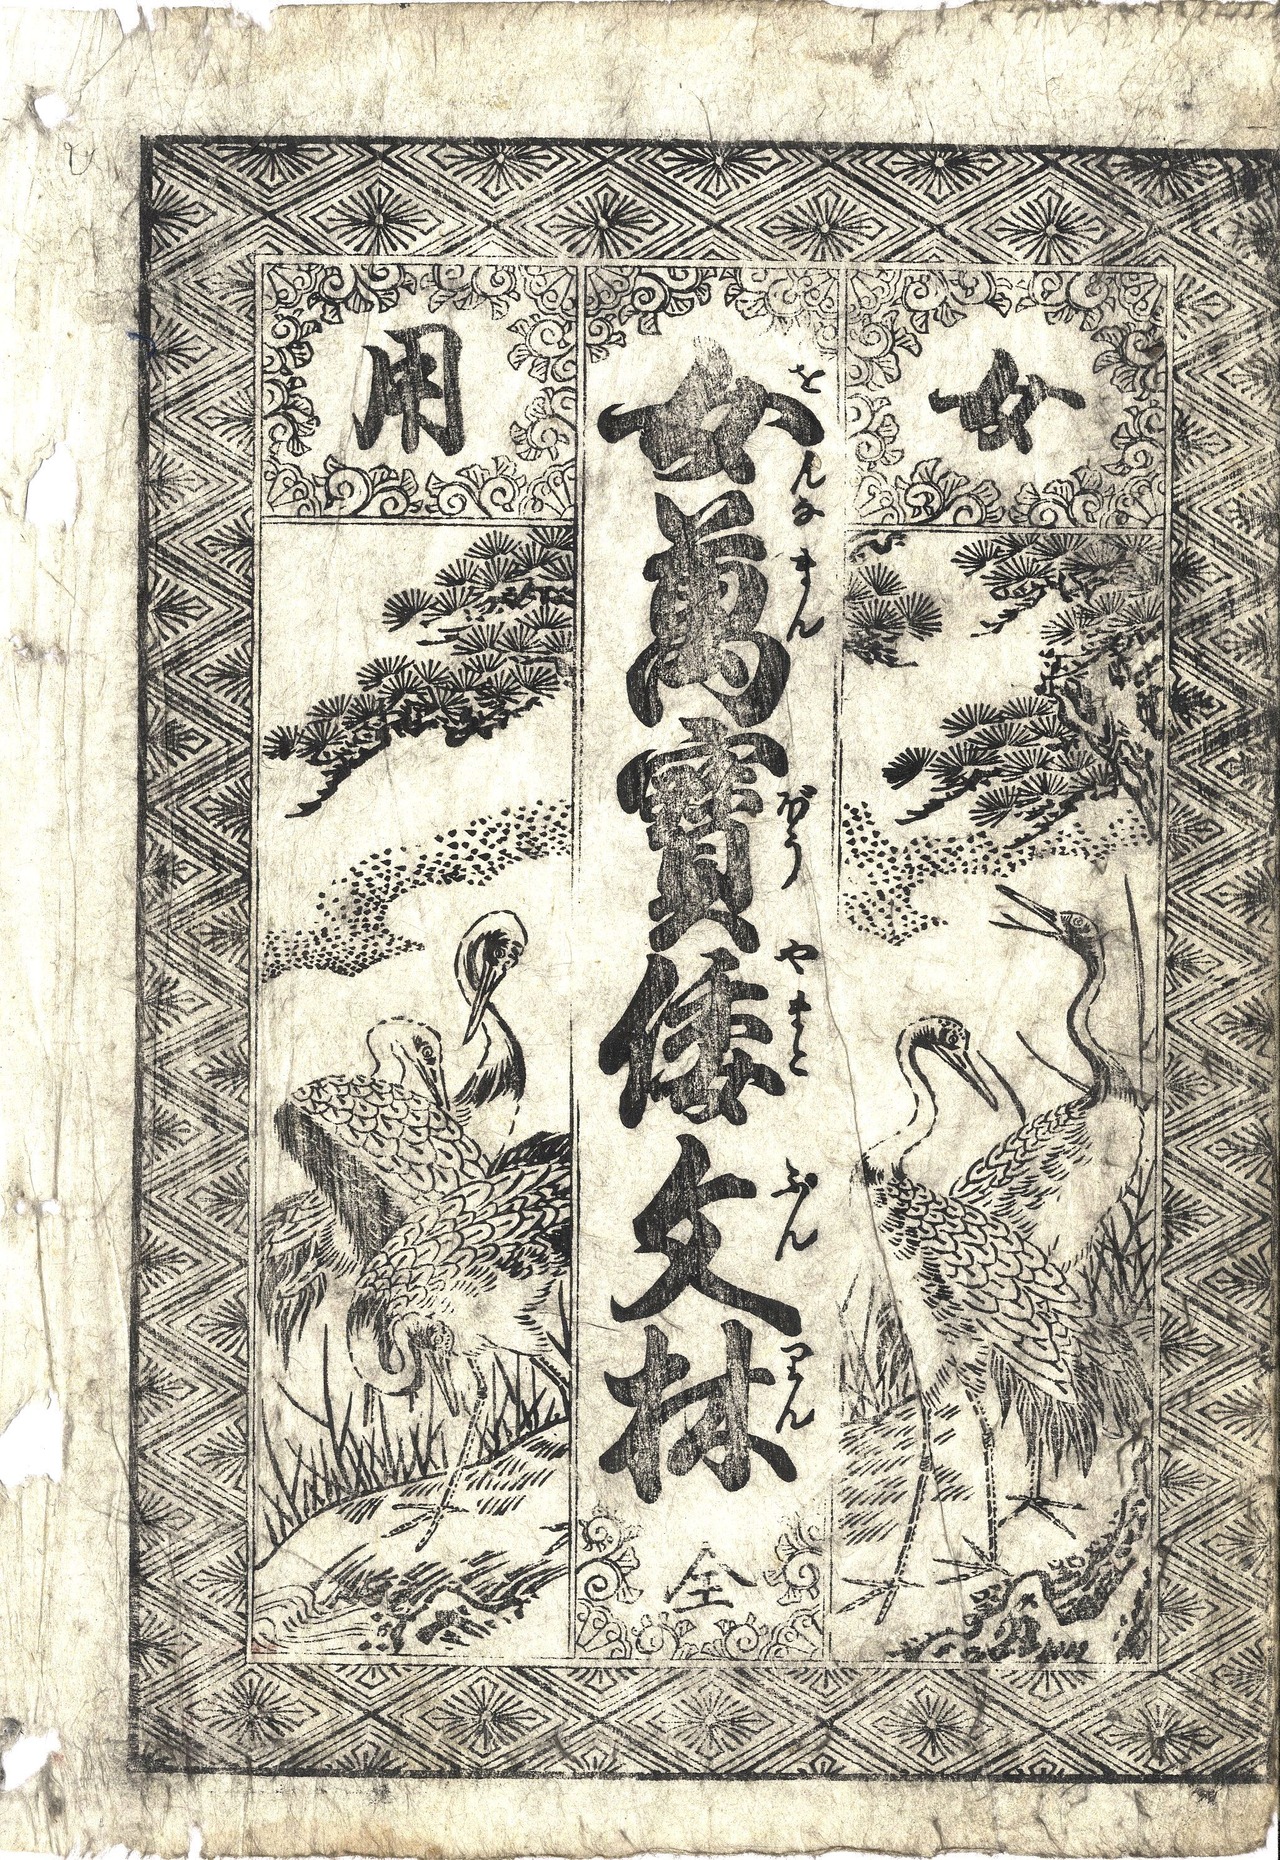 女
女萬寶倭文林
をんなまんばうやまとぶんりん
全
用